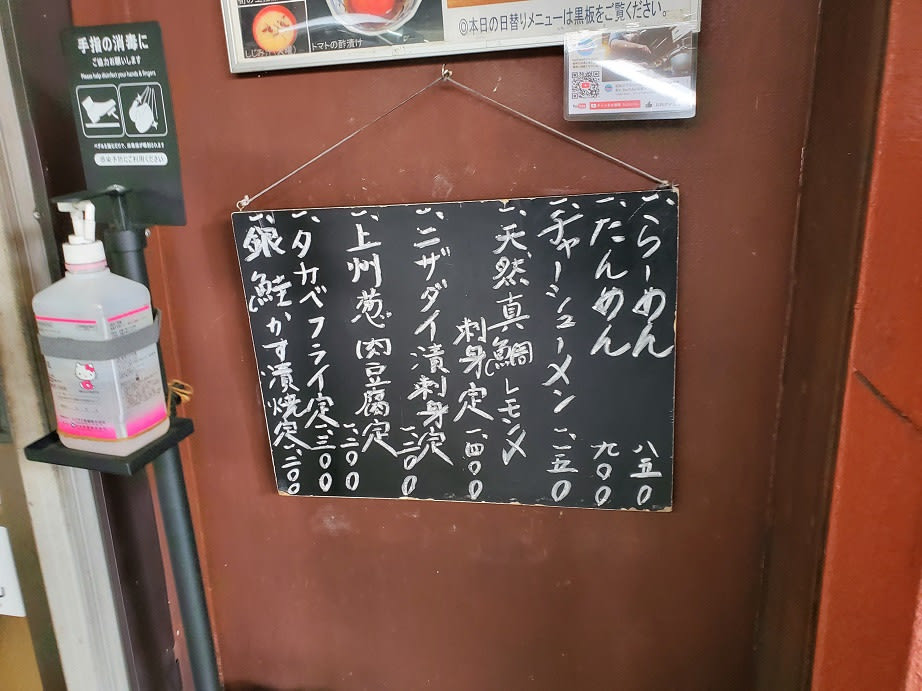 手指の消毒に
ご協力お願いします
Please help disinfect your hands & fingers
ペダルを踏むだけで、消毒液が噴射されます
感染予防にご利用ください
トマトの酢漬け
◎本日の日替りメニューは黒板をご覧ください。
一、らーめん 八五〇
一、たんめん 九〇〇
一、チャーシューメン 一、一五〇
一、天然真鯛レモン〆
刺身定 一、四〇〇
一、ニザダイ漬刺身定 一、三〇〇
一、上州葱肉豆腐定 一、二〇〇
一、タカベフライ定 一、三〇〇
一、銀鮭かす漬焼定 一、二〇〇